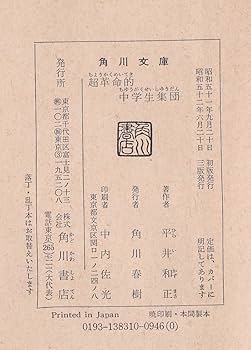 角川文庫
昭和五十一年九月二十日　初版発行
昭和五十二年六月二十日　三版発行
定価は、カバーに
明記してあります
ちょうかくめいてき
超革命的
ちゅうがくせいしゅうだん
中学生集団
角川書店
著作者　平井和正
発行者　角川春樹
印刷者　中内佐光
東京都文京区関口一ノ二四ノ八
発行所
東京都千代田区富士見二ノ十三
株式会社　角川書店
かどかわしょてん
電話東京265
落丁・乱丁本はお取替えいたします
Printed in Japan
暁印刷・本間製本
0193-138310-0946(0)